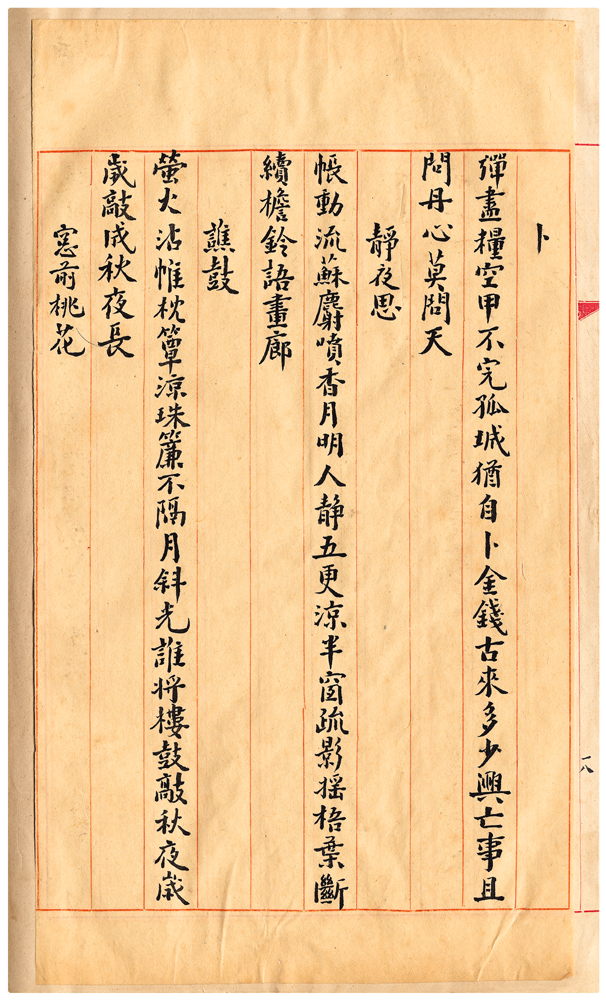 卜
彈盡糧空甲不完孤城猶自卜金錢古來多少興亡事且
問丹心莫問天
靜夜思
帳動流蘇麝噴香月明人靜五更涼半窗疏影搖梧葉斷
續檐鈴語畫廊
譙鼓
螢火沾帷枕簟涼珠簾不隔月斜光誰將樓鼓敲秋夜歲
歲敲成秋夜長
窓前桃花
八